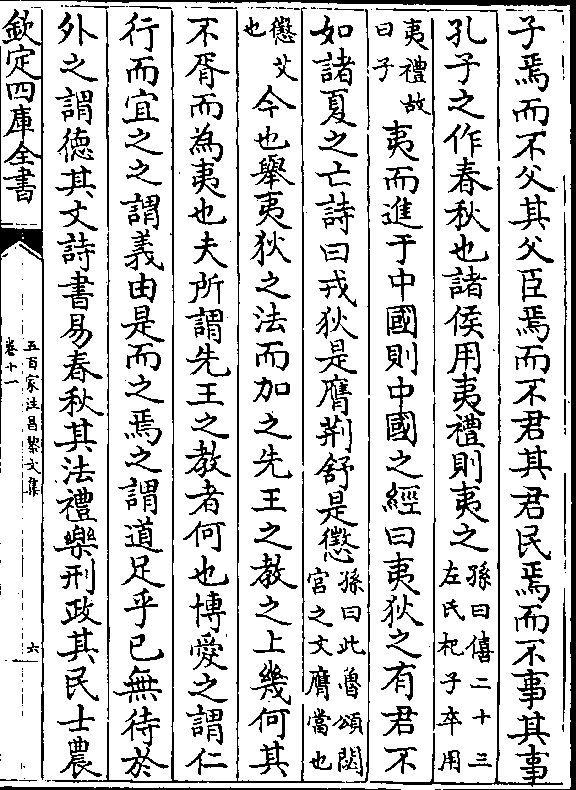 子焉而不父其父臣焉而不君其君民焉而不事其事
孔子之作春秋也諸侯用夷禮則夷之孫曰僖二十三左氏杞子卒用
夷禮故曰子夷而進于中國則中國之經曰夷狄之有君不
如諸夏之亡詩曰戎狄是膺荆舒是懲孫曰此魯頌閟宮之文膺當也
懲艾也今也舉夷狄之法而加之先王之教之上幾何其
不胥而為夷也夫所謂先王之教者何也博愛之謂仁
行而宜之之謂義由是而之焉之謂道足乎已無待於
外之謂徳其文詩書易春秋其法禮樂刑政其民士農
欽定四庫全書
五百家注昌黎文集
卷十一
六